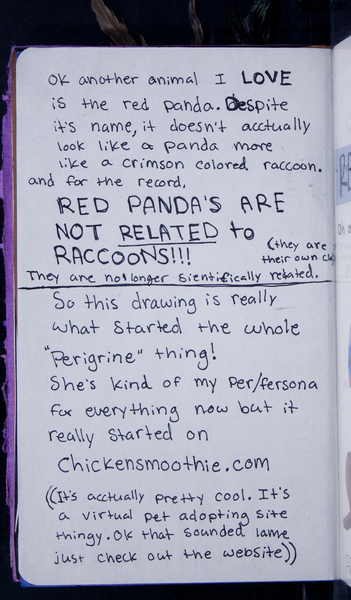 OK another animal I LOVE
is the red panda. Despite
it's name, it doesn't acctually
look like a panda more
like a crimson colored raccoon.
and for the record,
RED PANDA'S ARE
NOT RELATED to
RACCOONS!!! (they are
their own
They are no longer sientifically related.
So this drawing is really
what started the whole
"Perigrine" thing!
She's kind of my per/fersona
for everything now but it
really started on
Chickensmoothie.com
((It's acctually pretty cool. It's
a virtual pet adopting site
thingy. OK that sounded lame
just check out the website))